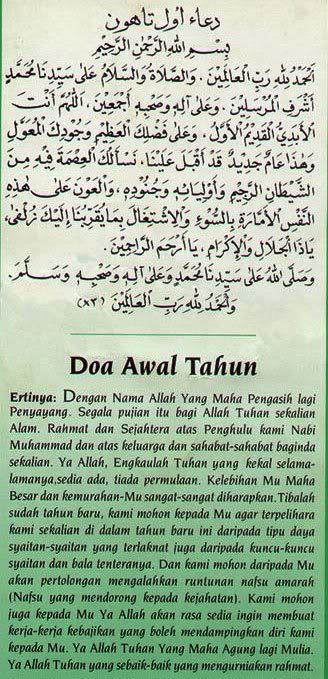 دعاء اول تاهون
بِسْمِ اللهِ الرَّحْمٰنِ الرَّحِيْمِ
اَلْحَمْدُ لِلّٰهِ رَبِّ الْعَالَمِيْنَ. وَالصَّلَاةُ وَالسَّلَامُ عَلَى سَيِّدِنَا مُحَمَّدٍ
أَشْرَفِ الْمُرْسَلِيْنَ. وَعَلَى اٰلِهِ وَصَحْبِهِ أَجْمَعِيْنَ. اَللّٰهُمَّ أَنْتَ
الْأَبَدِيُّ الْقَدِيْمُ الْأَوَّلُ. وَعَلَى فَضْلِكَ الْعَظِيْمِ وَجُوْدِكَ الْمُعَوَّلُ
وَهٰذَا عَامٌ جَدِيْدٌ قَدْ أَقْبَلَ عَلَيْنَا. نَسْأَلُكَ الْعِصْمَةَ فِيْهِ مِنَ
الشَّيْطَانِ الرَّجِيْمِ وَأَوْلِيَائِهِ وَجُنُوْدِهِ. وَالْعَوْنَ عَلَى هٰذِهِ
النَّفْسِ الْأَمَّارَةِ بِالسُّوْءِ وَالْإِشْتِغَالَ بِمَا يُقَرِّبُنَا إِلَيْكَ زُلْفَى.
يَا ذَا الْجَلَالِ وَالْإِكْرَامِ. يَا أَرْحَمَ الرَّاحِمِيْنَ.
وَصَلَّى اللهُ عَلَى سَيِّدِنَا مُحَمَّدٍ وَعَلَى اٰلِهِ وَصَحْبِهِ وَسَلَّمَ.
وَالْحَمْدُ لِلّٰهِ رَبِّ الْعَالَمِيْنَ (×٣)
Doa Awal Tahun
Ertinya: Dengan Nama Allah Yang Maha Pengasih lagi
Penyayang. Segala pujian itu bagi Allah Tuhan sekalian
Alam. Rahmat dan Sejahtera atas Penghulu kami Nabi
Muhammad dan atas keluarga dan sahabat-sahabat baginda
sekalian. Ya Allah, Engkaulah Tuhan yang kekal selama-
lamanya,sedia ada, tiada permulaan. Kelebihan Mu Maha
Besar dan kemurahan-Mu sangat-sangat diharapkan.Tibalah
sudah tahun baru, kami mohon kepada Mu agar terpelihara
kami sekalian di dalam tahun baru ini daripada tipu daya
syaitan-syaitan yang terlaknat juga daripada kuncu-kuncu
syaitan dan bala tenteranya. Dan kami mohon daripada Mu
akan pertolongan mengalahkan runtunan nafsu amarah
(Nafsu yang mendorong kepada kejahatan). Kami mohon
juga kepada Mu Ya Allah akan rasa sedia ingin membuat
kerja-kerja kebajikan yang boleh mendampingkan diri kami
kepada Mu. Ya Allah Tuhan Yang Maha Agung lagi Mulia.
Ya Allah Tuhan yang sebaik-baik yang mengurniakan rahmat.